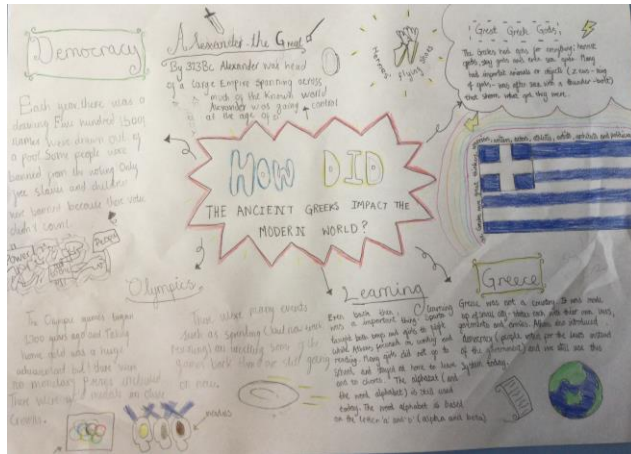 Democracy
Each year there was a
drawing five hundred (500)
names were drawn out of
a pool. Some people were
banned from the voting. Only
free slaves and children
were banned because their vote
didn't count.
Alexander the Great
By 323Bc Alexander was head
of a large Empire spanning across
most of the Known world
Alexander was going control
at the age of
Hermes Flying Shoes
Great Greek Gods,
The Greeks had gods for everything; house
gods, sky gods and even sea gods. Many
had important animals or objects (Zeus-king
of gods-was often seen with a thunder-bolt)
that shows what god they were.
HOW DID
THE ANCIENT GREEKS IMPACT THE
MODERN WORLD?
Olympics
The Olympic games began
years ago and Taking
home gold was a huge
achievement but there were
no monetary prizes included.
There weren't medals an olive
Crowns.
There where many events
such as
games back then are still going
on now.
medals
Learning
Even back then, learning
was a important thing sparta
taught both boys and girls to fight
whilst Athens focused on writing and
reading. Many girls did not go to
School and stayed at home to learn
and to chores. The alphabet (and
the word alphabet) is still used
today. The word alphabet is based
on the letter 'a' and 'b' (alpha and beta)
Greece
Greece was not a country. It was made
up of small city states each with their own laws,
governments and armies. Athens also introduced
democracy (people voting for the laws instead
of the government) and we still see this
System today.